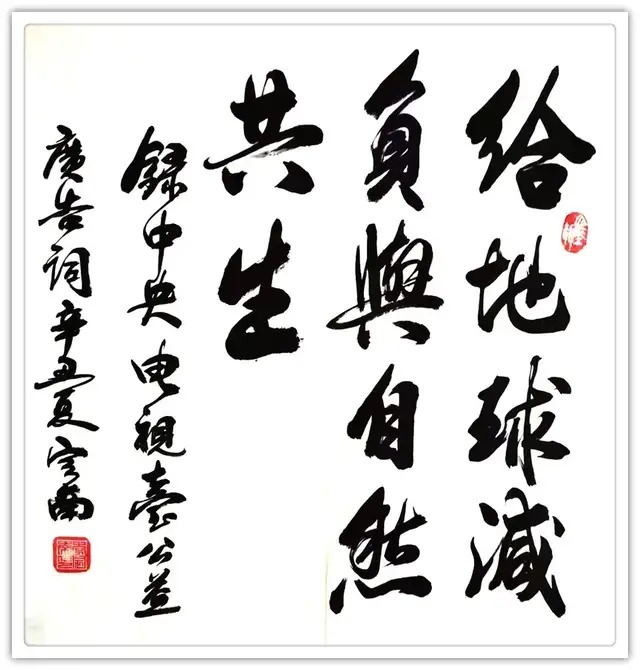 给地球減
負與自然
共生
録中央电視臺公益
廣告詞辛丑夏雲南